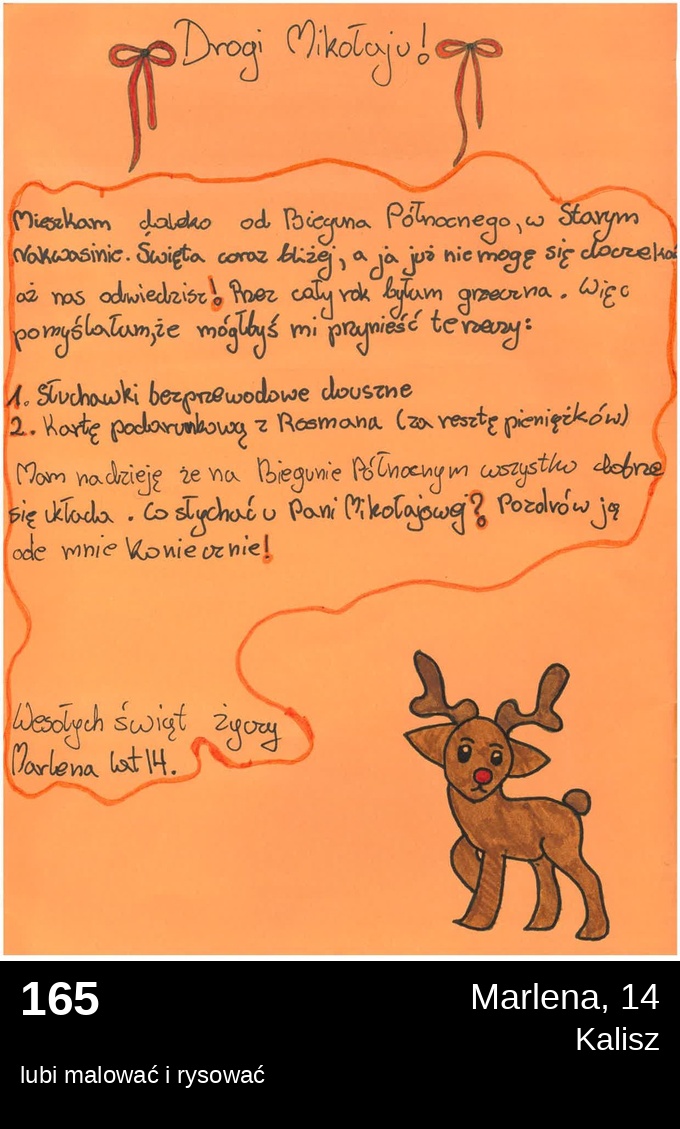 Drogi Mikołaju!
Mieszkam daleko od Bieguna Północnego, w Starym
Nakwasinie. Święta coraz bliżej, a ja już nie mogę się doczekać
aż nas odwiedzisz! Przez cały rok byłam grzeczna. Więc
pomyślałam, że mógłbyś mi przynieść te rzeczy:
1. Słuchawki bezprzewodowe douszne
2. Kartę podarunkową z Rosmana (za resztę pieniążków)
Mam nadzieję że na Biegunie Północnym wszystko dobrze
się układa. Co słychać u Pani Mikołajowej? Pozdrów ją
ode mnie koniecznie!
Wesołych świąt życzy
Marlena lat 14.
165
Marlena, 14
Kalisz
lubi malować i rysować